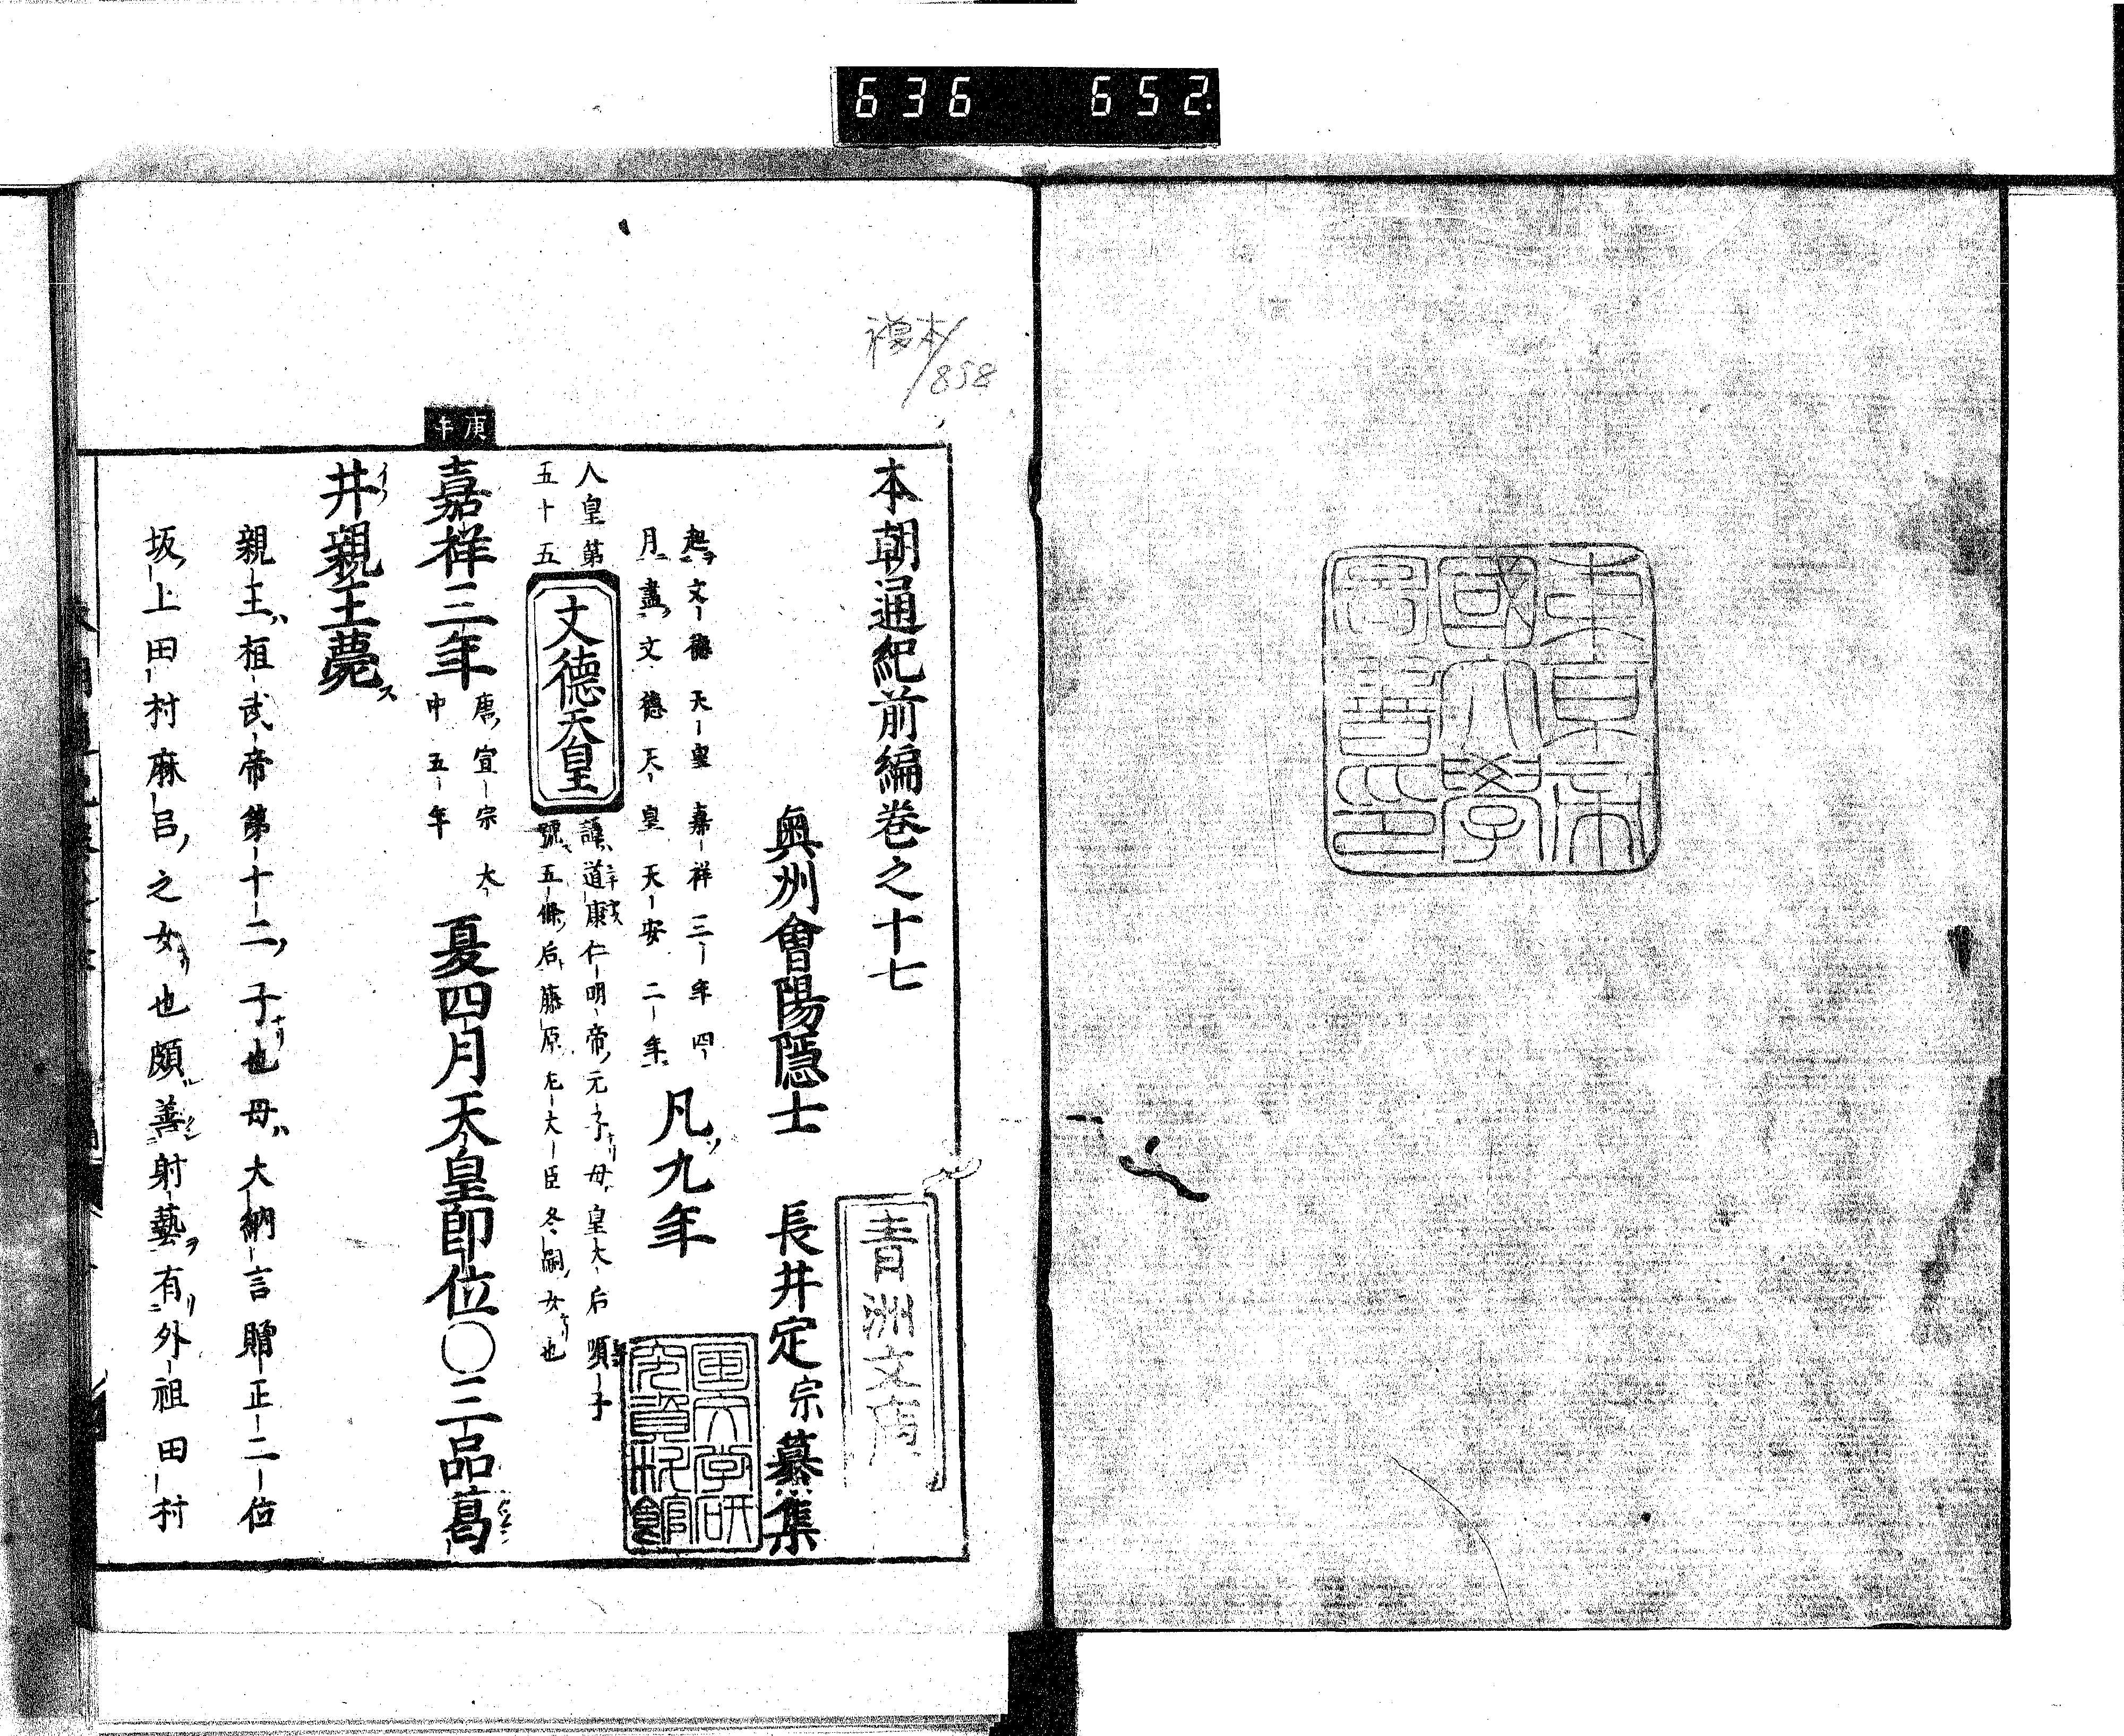 636 652
東京帝
國大學
圖書印
複本
858
本朝通紀前編卷之十七
青洲文庫
奥州會陽隱士 長井定宗纂集
起文德天皇嘉祥三年四
月盡文德天皇天安二年
凡九年
国文学研
究資料館
人皇第
五十五
文德天皇
諱道康仁明帝元子母皇太后順子
號五條后藤原左大臣冬嗣女也
庚午
嘉祥三年
唐宣宗大
中五年
夏四月天皇即位〇三品葛
井親王薨ス
親王ハ桓武帝第十二子也母ハ大納言贈正二位
坂上田村麻呂之女也頗善射藝有外祖田村